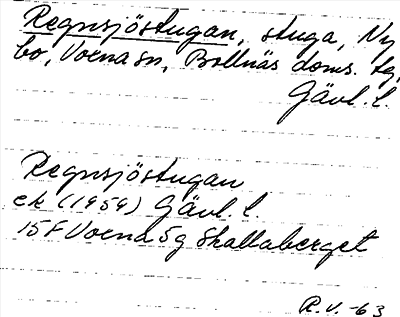 Regnsjöstugan, stuga, Ny
bo, Voxna sn, Bollnäs doms. tg,
Gävl. l.
Regnsjöstugan
ek (1959) Gävl. l.
15F Voxna 5g Skallaberget
R.V. -63